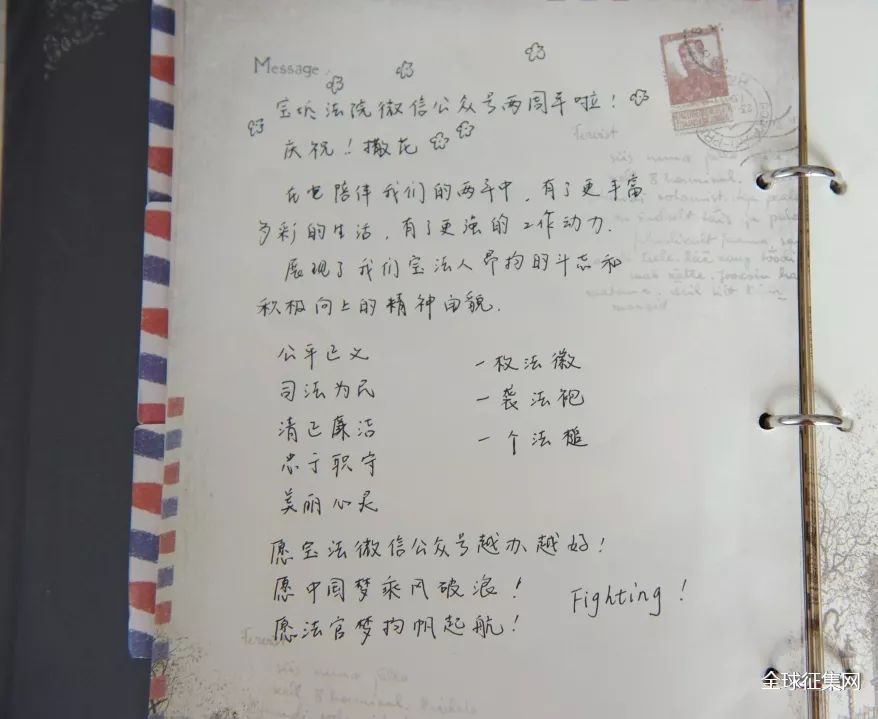 Message
宝坻法院微信公众号两周年啦！
庆祝！撒花
在它陪伴我们的两年中，有了更丰富
多彩的生活，有了更强的工作动力.
展现了我们宝法人昂扬的斗志和
积极向上的精神面貌.
公平正义
司法为民
清正廉洁
忠于职守
美丽心灵
一枚法徽
一袭法袍
一个法槌
愿宝法微信公众号越办越好！
愿中国梦乘风破浪！
愿法官梦扬帆起航！
Fighting！
全球征集网